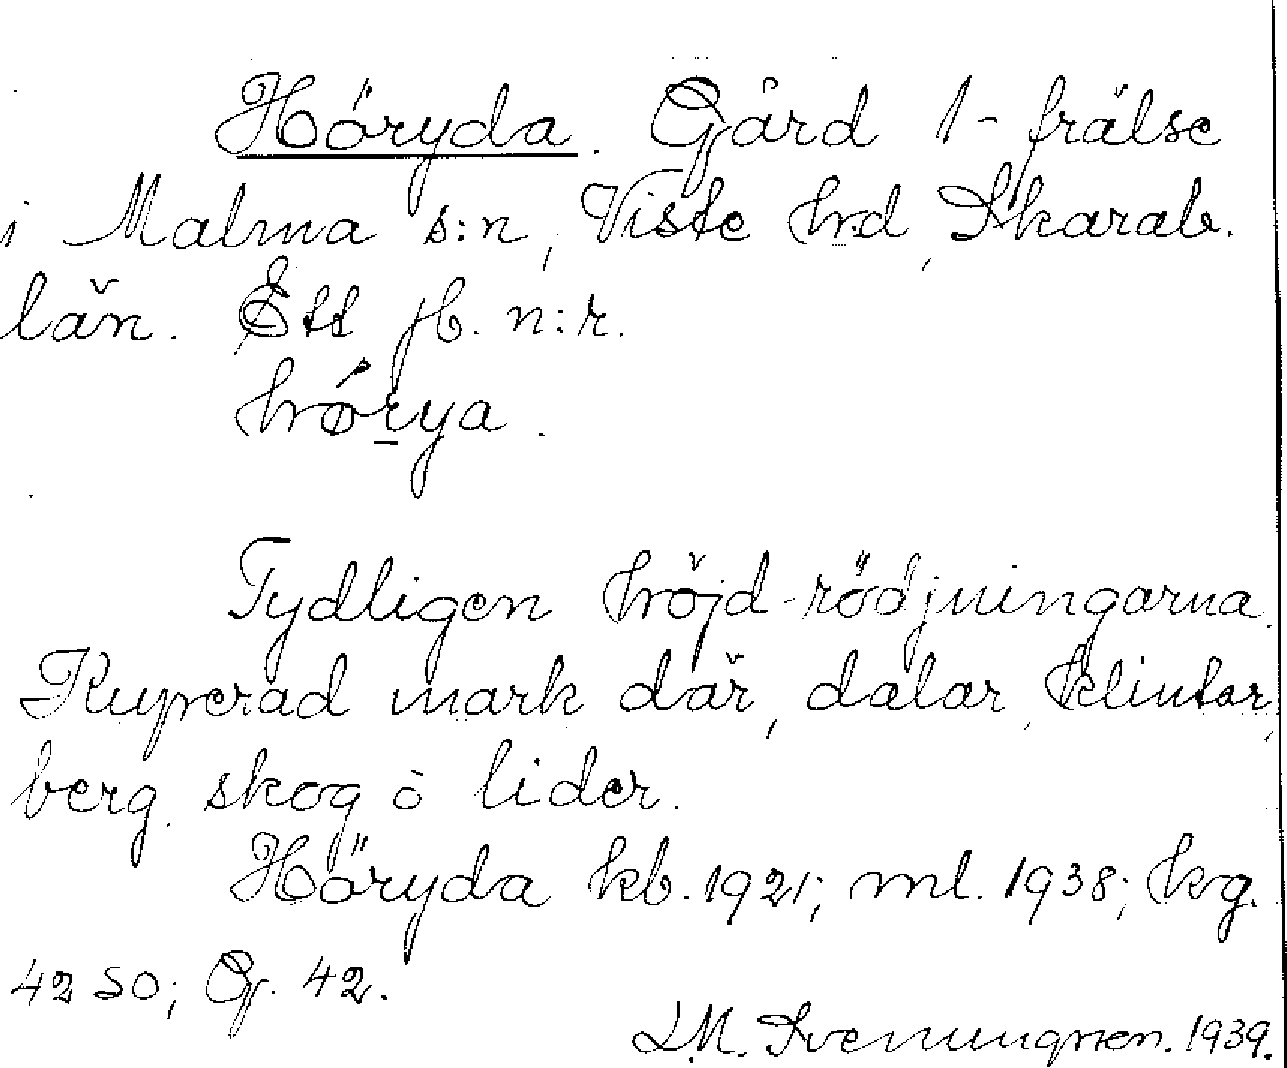 Höryda. Gård 1 - frälse
i Malma s:n, Viste hrd, Skarab.
län. Ett jb. n:r.
hǿrya.
Tydligen höjd-rödjningarna.
Kuperad mark där, dalar, klintar,
berg, skog o lider.
Höryda kb. 1921; ml. 1938; kg.
42 SO; Gf. 42.